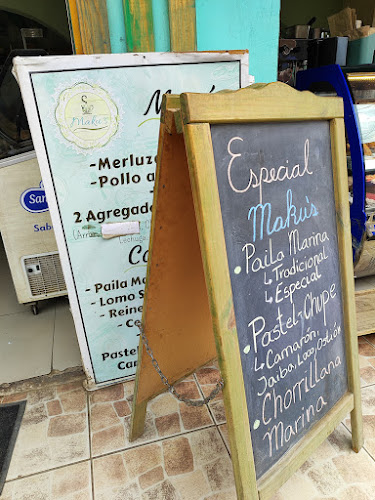 Maku's
-Merluza
-Pollo a
2 Agregado
Paila Ma
-Lomo S
-Reine
Paste
Especial
Makus
• Paila Marina
↳ Tradicional
↳ Especial
• Pastel-Chupe
↳ Camarón,
Jaiba, Loco, Ostión
• Chorrillana
Marina